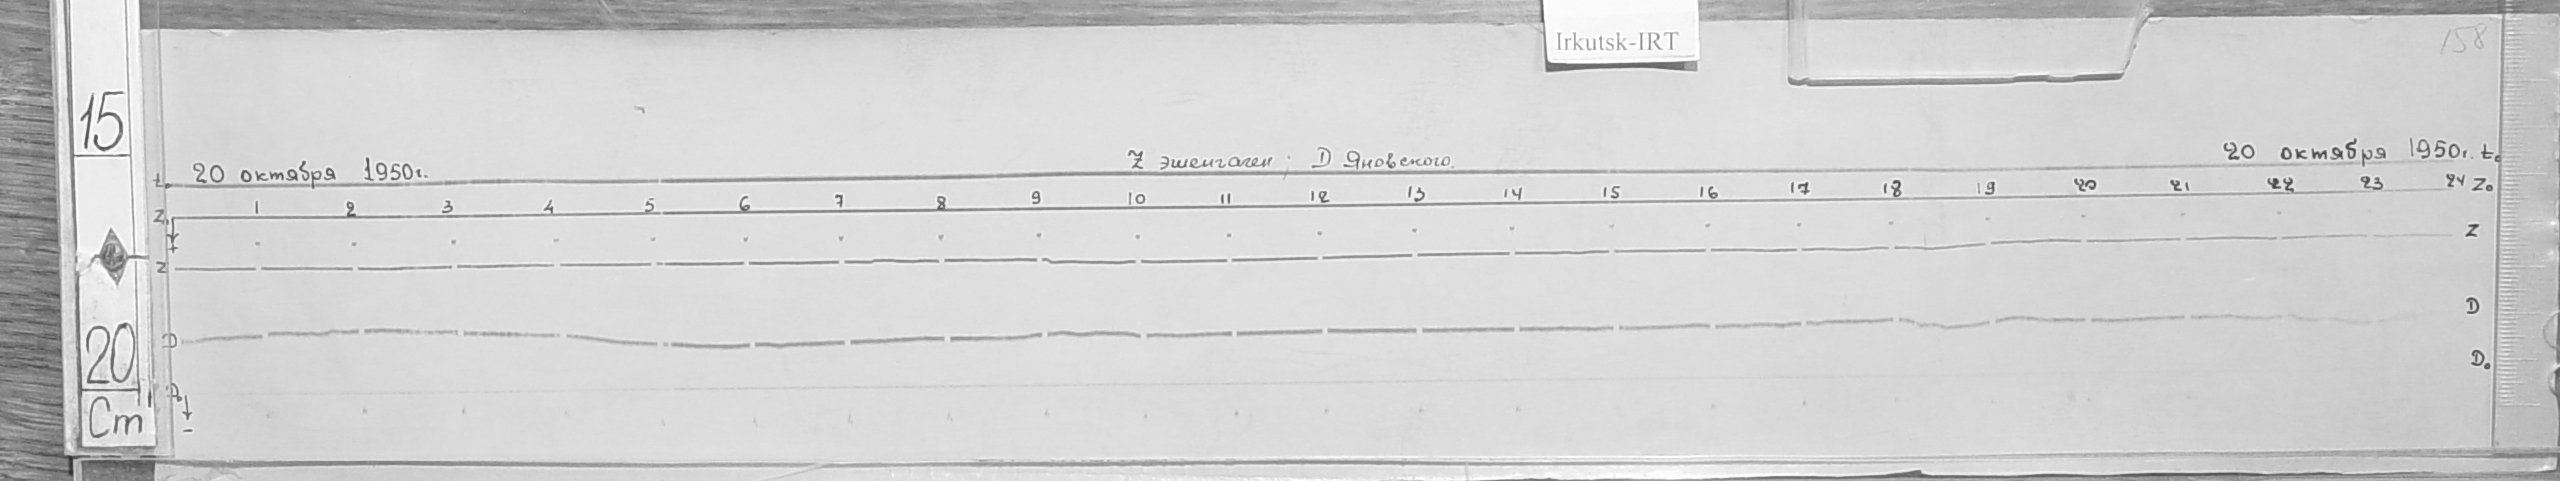 Irkutsk-IRT
158
15
20 октября 1950г. Z эшенгаген; D Яновского. 20 октября 1950г. t.
t.
1 2 3 4 5 6 7 8 9 10 11 12 13 14 15 16 17 18 19 20 21 22 23 24 Z₀
Z₀
+
Z Z
D D
20
D₀ D₀
Cm
-